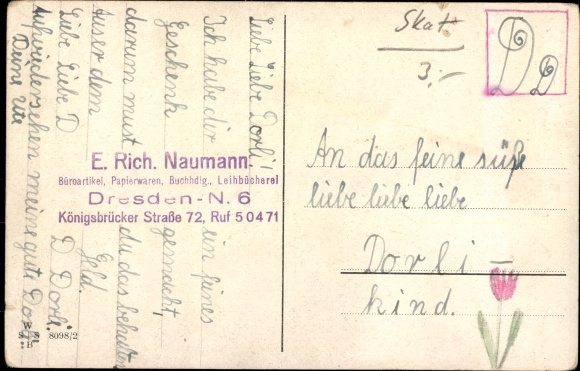 Liebe Liebe Dorli
Ich habe dir ein feines
Geschenk gemacht,
darum must du das behalten
auser dem Geld.
Liebe Liebe D D Dorli
Aufwiedersehen meine gute Dorli
Deine Ute
E. Rich. Naumann
Büroartikel, Papierwaren, Buchhdlg., Leihbücherei
Dresden-N. 6
Königsbrücker Straße 72, Ruf 50471
W
S S 8098/2
B
Skat
3,-
D D
An das feine süße
liebe liebe liebe
Dorli –
kind.